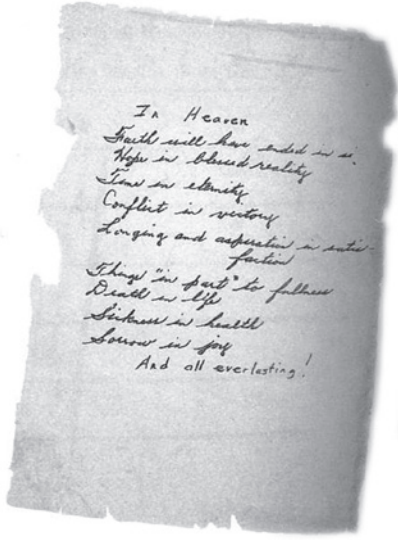 In Heaven
Faith will have ended in si-
Hope in blessed reality
Time in eternity
Conflict in victory
Longing and aspiration in satis-
faction
Things "in part" to fullness
Death in life
Sickness in health
Sorrow in joy
And all everlasting!